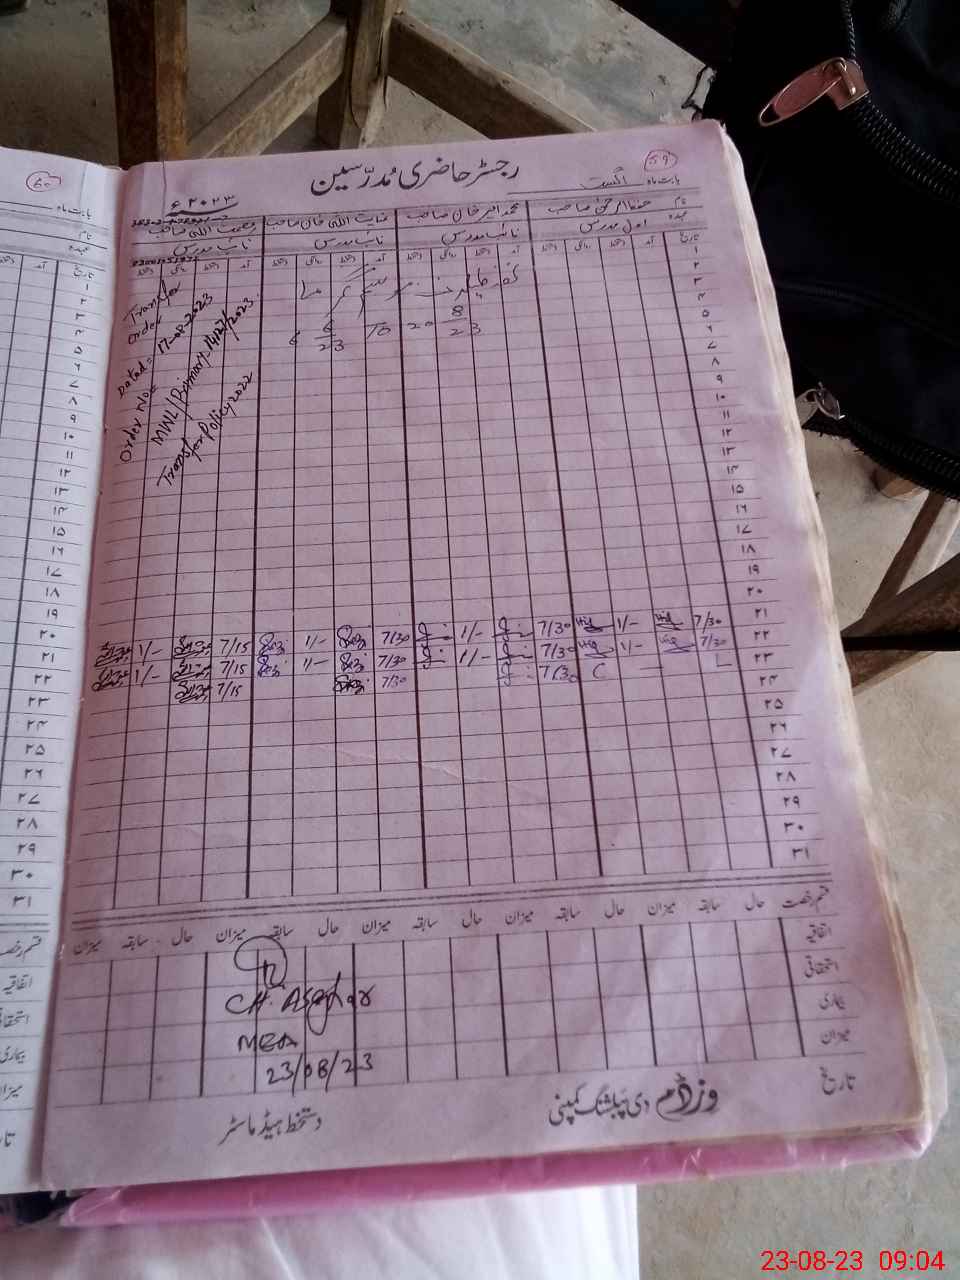 59
رجسٹر حاضری مُدرّسین
بابت ماہ اگست
۲۰۲۳ء
نام
عہدہ
محمد امیر خان صاحب
عنایت اللہ خان صاحب
نعمت اللہ صاحب
اول مدرس
نائب مدرس
نائب مدرس
نائب مدرس
تاریخ آمد دستخط روانگی دستخط آمد دستخط روانگی دستخط آمد دستخط روانگی دستخط آمد دستخط روانگی دستخط
Transfer
order
Dated = 17-08-2023
Order No:
MWL/Primary-1412/2023.
Transfer Policy 2022
6/23 To 20 8/23
۱
۲
۳
۴
۵
۶
۷
۸
۹
۱۰
۱۱
۱۲
۱۳
۱۴
۱۵
۱۶
۱۷
۱۸
۱۹
۲۰
۲۱ 7/30 1/- 7/30 1/- 7/30 1/- 7/15 1/-
۲۲ 7/30 1/- 7/30 1/- 7/30 1/- 7/15 1/-
۲۳ L — C 7/30 7/30 7/15
۲۴
۲۵
۲۶
۲۷
۲۸
۲۹
۳۰
۳۱
قسم رخصت حال سابقہ میزان حال سابقہ میزان حال سابقہ میزان حال سابقہ میزان
اتفاقیہ
استحقاقی
بیماری
میزان
تاریخ
12
CH. Asghar
MEA
23/08/23
وزڈم دی پبلشنگ کمپنی
دستخط ہیڈ ماسٹر
60
بابت ماہ
نام
عہدہ
تاریخ
آمد
۱
۲
۳
۴
۵
۶
۷
۸
۹
۱۰
۱۱
۱۲
۱۳
۱۴
۱۵
۱۶
۱۷
۱۸
۱۹
۲۰
۲۱
۲۲
۲۳
۲۴
۲۵
۲۶
۲۷
۲۸
۲۹
۳۰
۳۱
قسم رخصت
اتفاقیہ
استحقاقی
بیماری
میزان
23-08-23 09:04